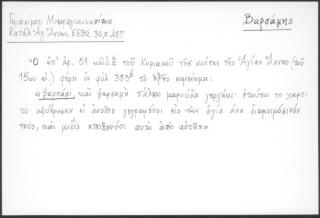 Γερασίμου Μικραγιαννανίτου
Κατάλ. Ἁγ. Ἄννης, ΕΕΒΣ 30, σ. 457
Βαρσάμης
Ὁ ὑπ' ἀρ. 51 κῶδιξ τοῦ Κυριακοῦ τῆς σκήτης τῆς Ἁγίας Ἄννης (τοῦ
15ου αἰ.) φέρει ἐν φύλ. 383β τὸ ἑξῆς σημείωμα:
« βαρσάμη, καὶ βαρσαμη πάλκω μαρούδα γεργάκι: ἐτούτω το χαρτι
το αφιέρωσαν οἱ ἄνοθεν γεγραμένοι εἰς την ἁγία άνα διαμνιμόσινόν
τους, καὶ μιδὶς αποξενόσι αυτο ἀπο αυτῆν».